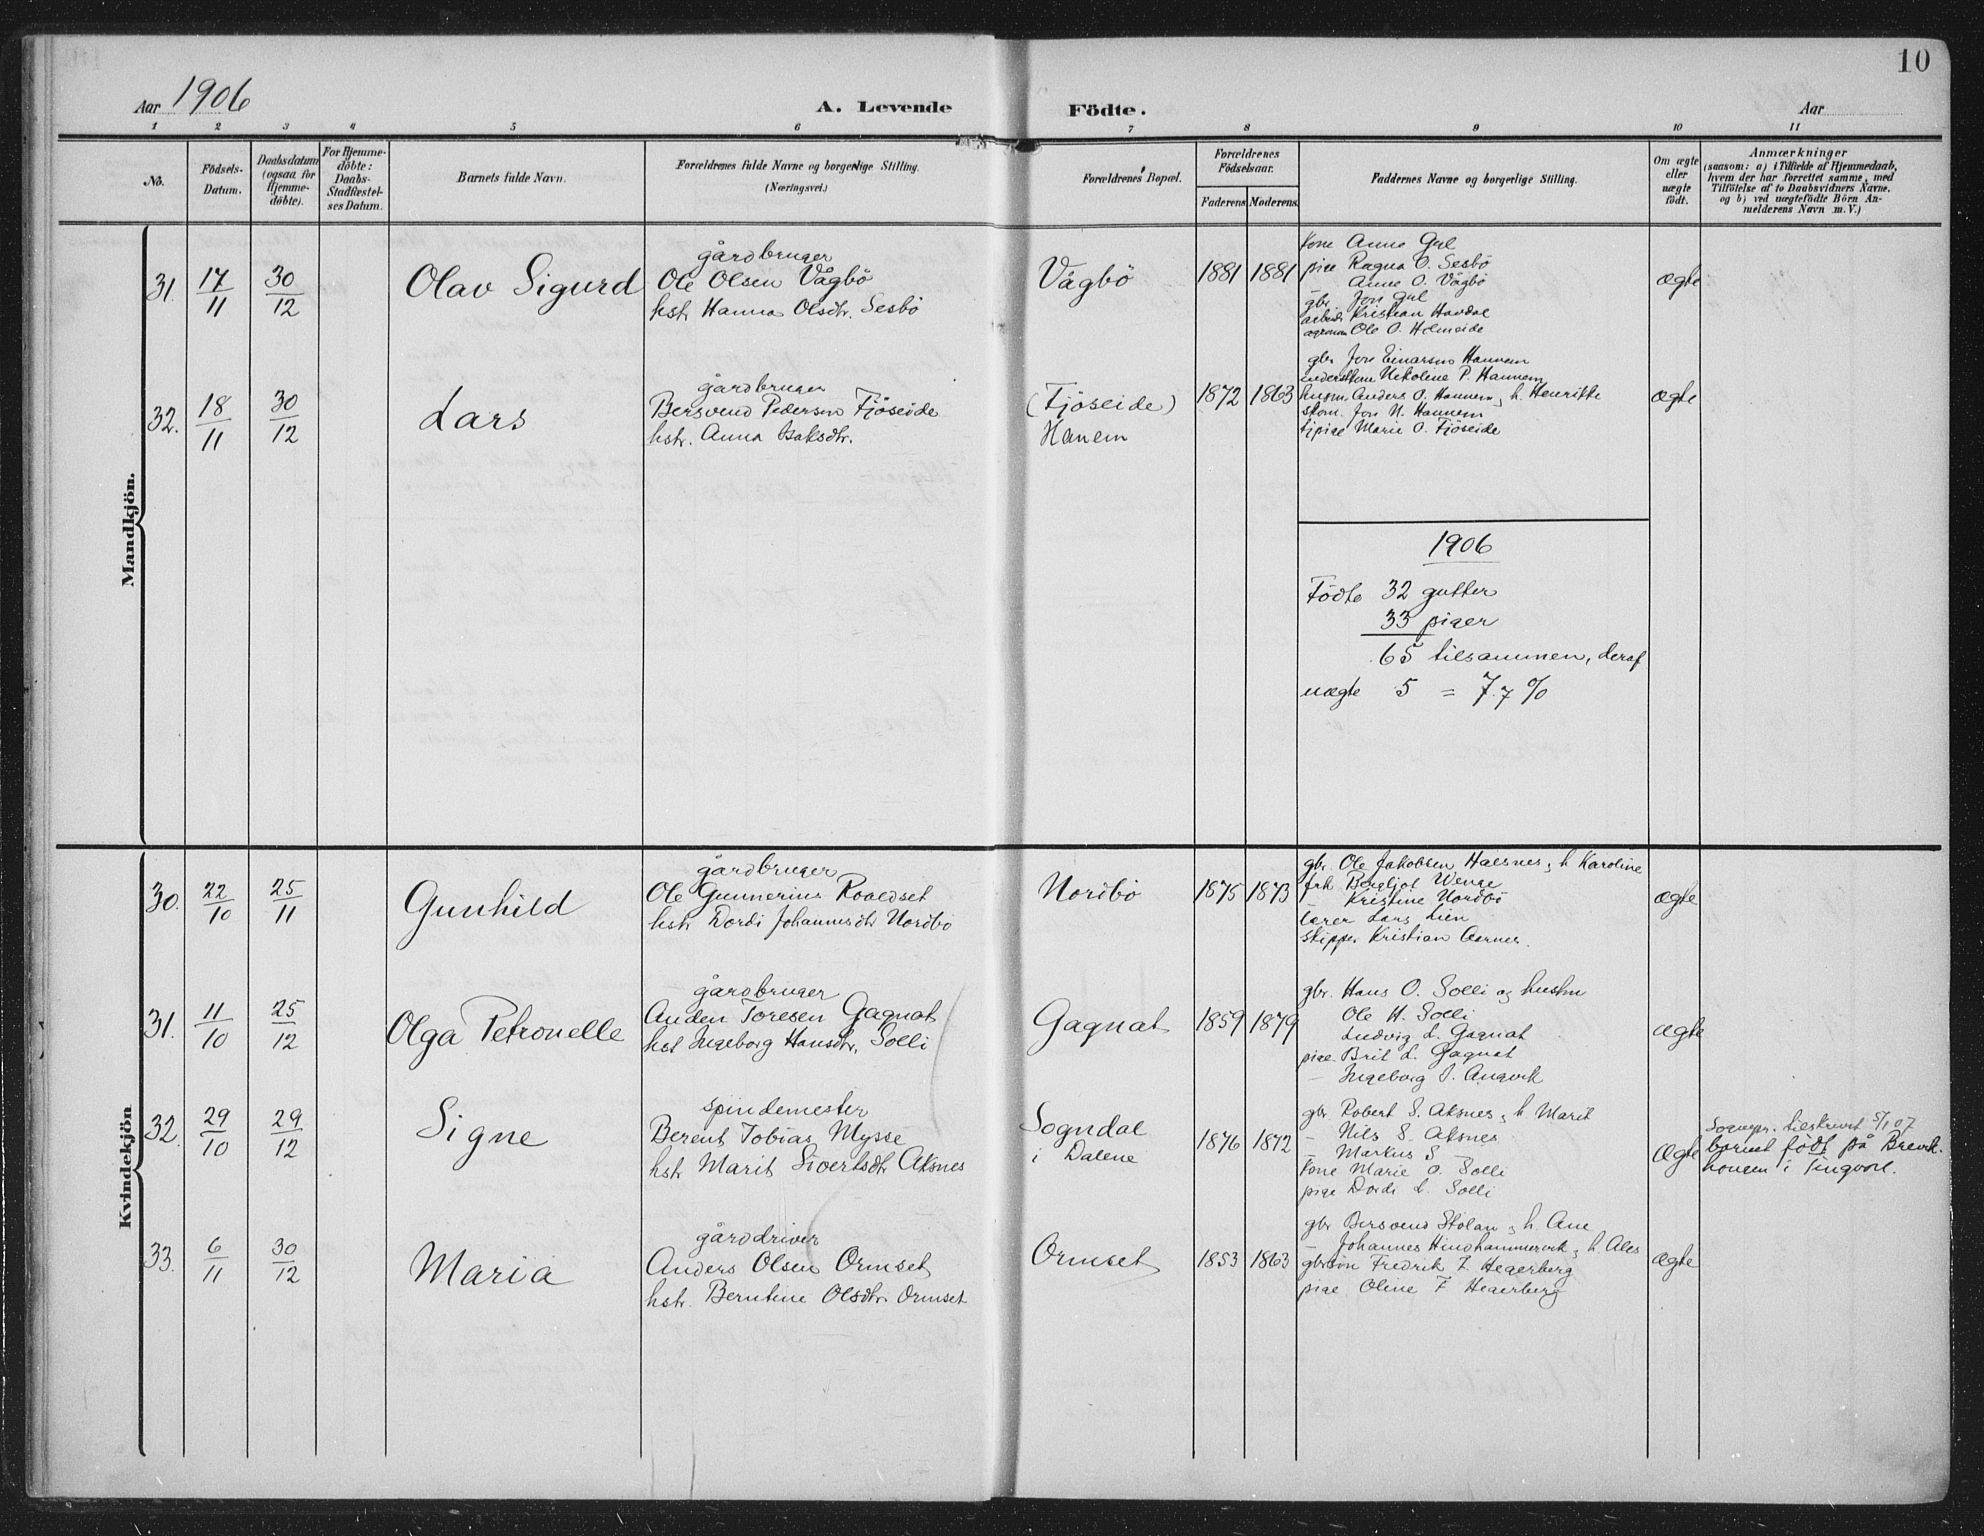 10
Aar 1906
A. Levende
Födte.
Aar
1 2 3 4 5 6 7 8 9 10 11
No.
Födsels-
Datum.
Daabsdatum
(ogsaa for
Hjemme-
døbte).
For Hjemme-
døbte:
Daabs-
Stadfæstel-
ses Datum.
Barnets fulde Navn.
Forældrenes fulde Navne og borgerlige Stilling.
(Næringsvei.)
Forældrenes Bopæl.
Forældrenes
Fødselsaar.
Faderens
Moderens.
Faddernes Navne og borgerlige Stilling.
Om ægte
eller
uægte
født.
Anmærkninger
(saasom: a) i Tilfælde af Hjemmedaab,
hvem der har forrettet samme, med
Tilføielse af to Daabsvidners Navne.
og b) ved uægtefødte Börn An-
melderens Navn m. V.)
Mandkjön.
31.
17/11
30/12
Olav Sigurd
gårdbruger
Ole Olsen Vågbö
hstr Hanna Olsdtr. Sesbö
Vågbö
1881
1881
kone Anne Gul
pige Ragna O. Sesbö
Anne O. Vågbö
gbr Jon Gul
arbeidr Kristian Havdal
agronom Ole O. Holmeide
ægte
32.
18/11
30/12
Lars
gårdbruger
Bersvend Pedersen Fjöseide
hstr. Anna Isaksdtr.
(Fjöseide)
Hanem
1872
1863
gbr Jon Einarsen Hannem
Nikoline P. Hannem
husm. Anders O. Hannem, h. Henrikke
skom. Jon N. Hannem
tjpige Marie O. Fjöseide
ægte
1906
Födte 32 gutter
33 piger
65 tilsammen, deraf
uægte 5 = 7.7 %
Kvindekjön
30.
22/10
25/11
Gunhild
gårdbruger
Ole Gunnerius Roaldset
hstr Dordi Johannesdtr Nordbö
Nordbö
1875
1873
gbr. Ole Jakobsen Halsnes, h Karoline
frk Bergljot Wenge
— Kristine Nordbö
lærer Lars Lien
skipper Kristian Aarnes.
ægte
31.
11/10
25/12
Olga Petronelle
gårdbruger
Anden Toresen Gagnat
hst Ingeborg Hansdtr. Solli
Gagnat
1859
1879
gbr. Hans O. Solli og hustru
Ole H. Solli
Ludvig L. Gagnat
pige Brit L. Gagnat
— Ingeborg O. Angvik
ægte
32.
29/10
29/12
Signe
spindemester
Berent Tobias Mysse
hst Marit Sivertsdtr Aksnes
Sogndal
i Dalene
1876
1872
gbr Robert S. Aksnes, h. Marit
— Nils S. Aksnes
— Markus S —
kone Marie O. Solli
pige Dordi L. Solli
ægte
Sognepr. tilskrevet 5/1 07
barnet födt på Brevik-
hovem i Tingvoll.
33.
6/11
30/12
Maria
gårddriver
Anders Olsen Ormset
hstr. Berntine Olsdtr. Ormset
Ormset
1853
1863
gbr Bersvend Stolan, h. Ane
— Johannes Hindhammervik, h. Ales
gbrsön Fredrik F. Hegerberg
pige Oline F Hegerberg
ægte